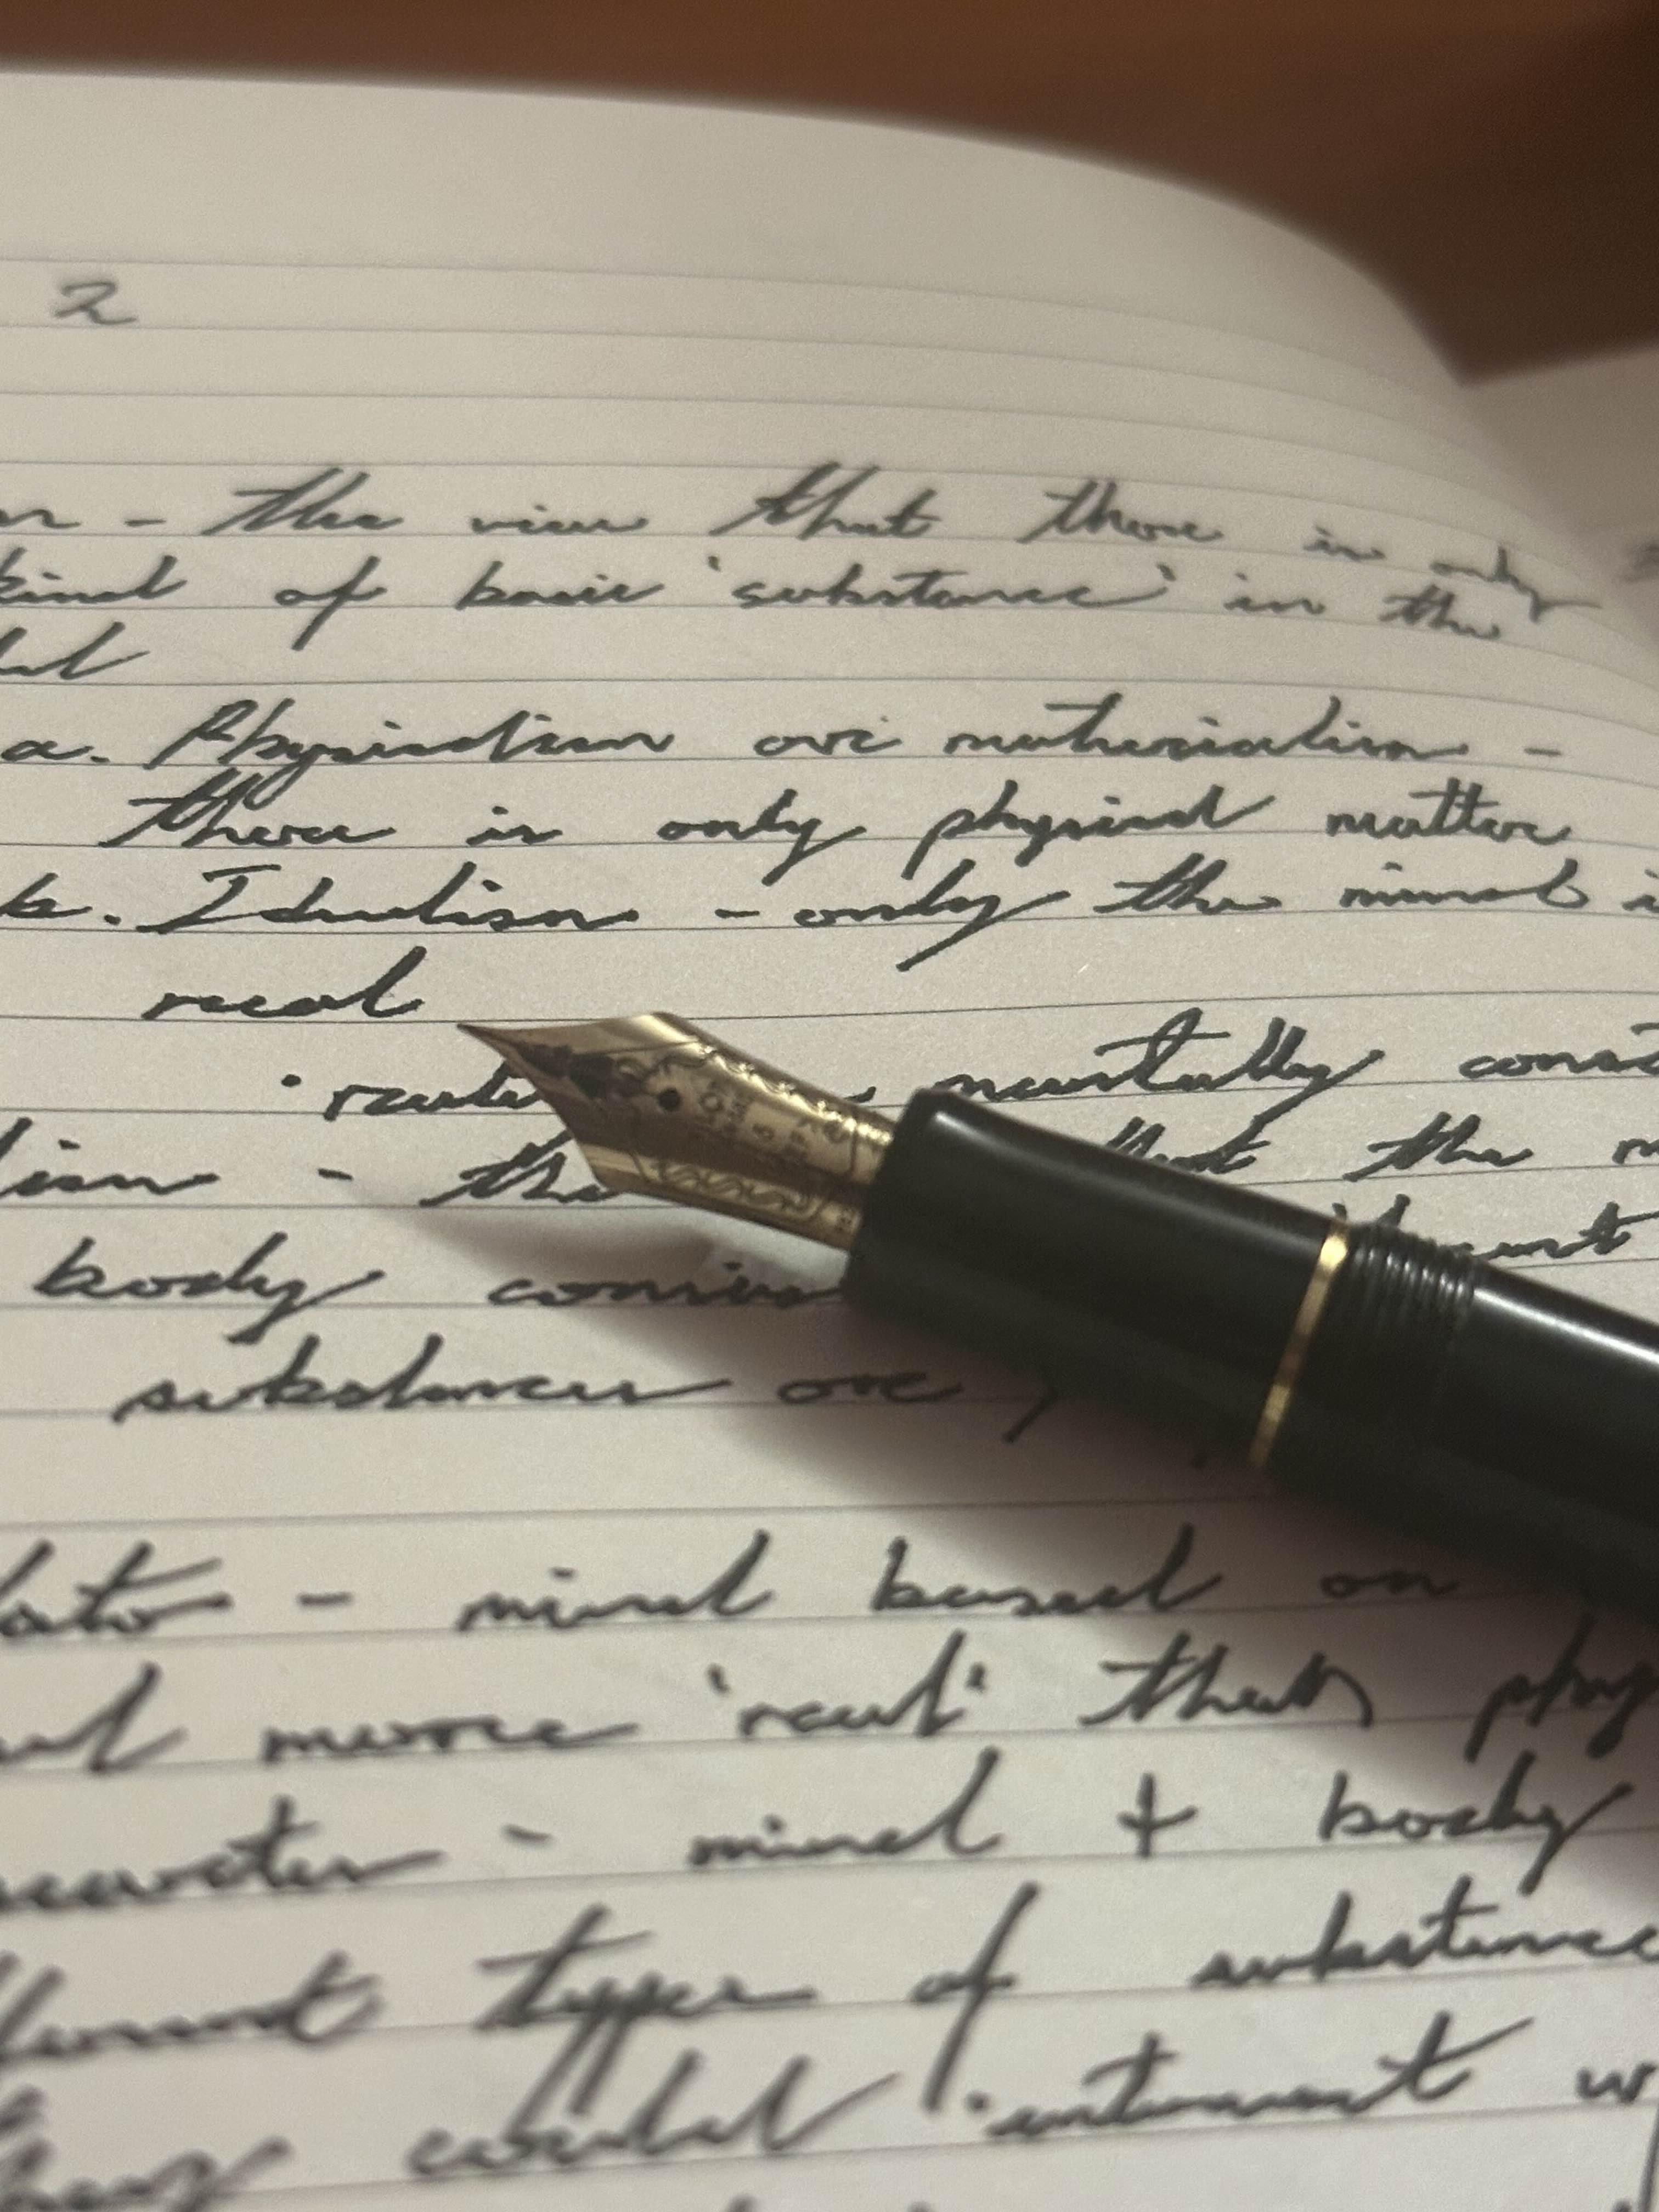 2
- the view that there is only
kind of basic 'substance' in the
a. Physicalism or materialism -
there is only physical matter
b. Idealism - only the mind i
real
mentally const
ism - the that the m
body
substances or
lato - mind based on
more 'real' than phy
- mind + body
types of substance
could interact w